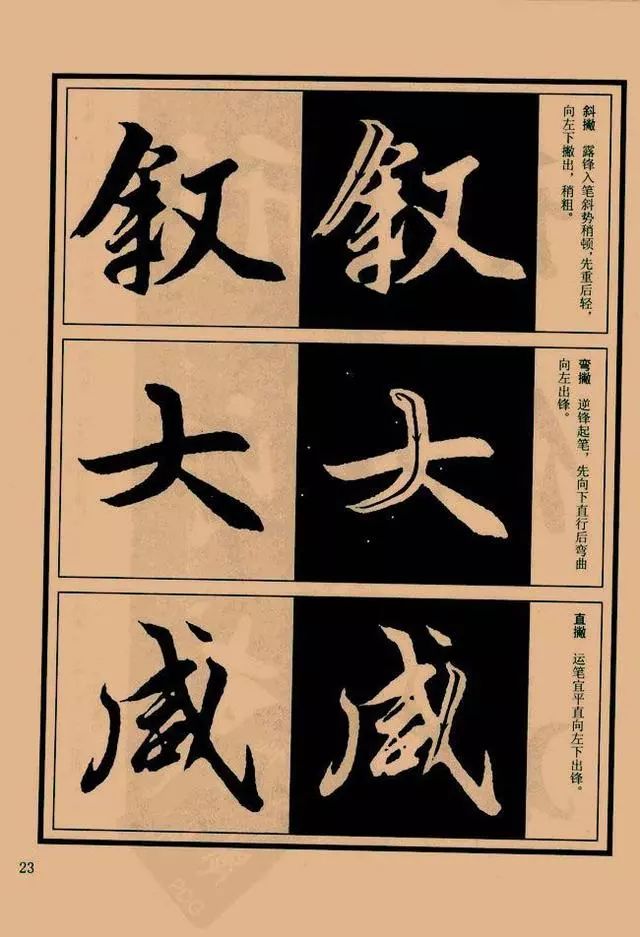 斜撇　露锋入笔斜势稍顿，先重后轻，
向左下撇出，稍粗。
叙
叙
弯撇　逆锋起笔，先向下直行后弯曲
向左出锋。
大
大
直撇　运笔宜平直向左下出锋。
咸
咸
23